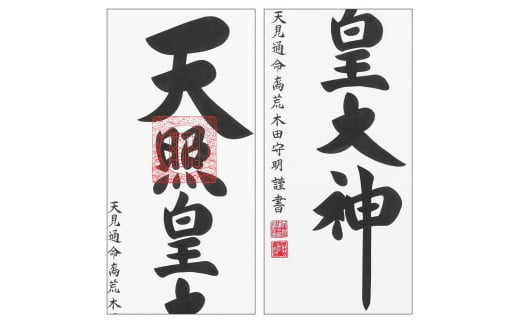 天照皇大
天見通命裔荒木田
皇大神
天見通命裔荒木田守明謹書